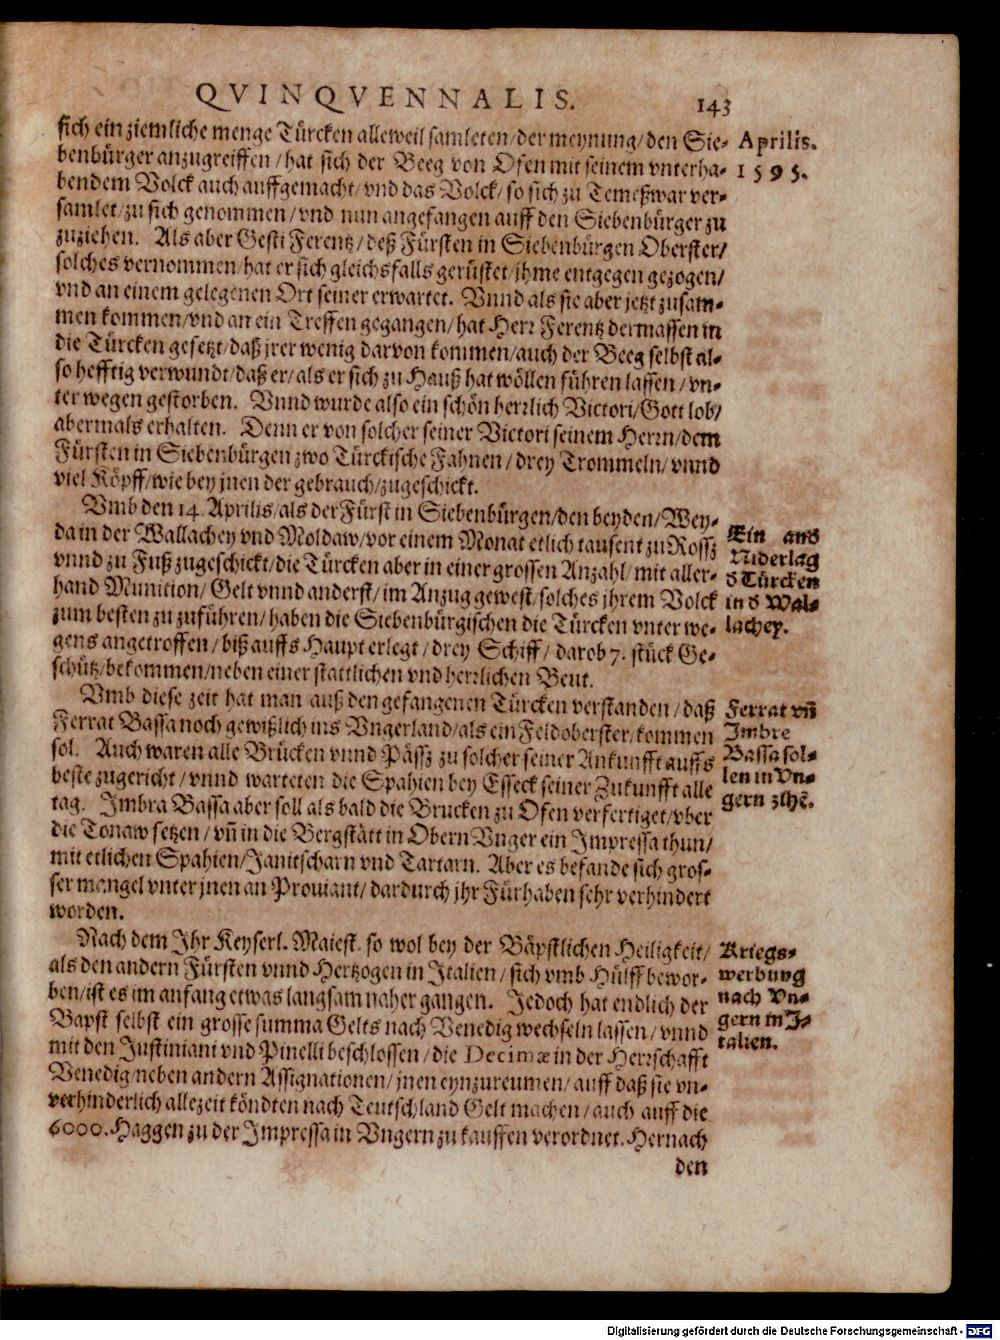 QVINQVENNALIS. 143
sich ein ziemliche menge Türcken alleweil samleten/der meynung/den Sie-
benbürger anzugreiffen/hat sich der Beeg von Ofen mit seinem vnterha-
bendem Volck auch auffgemacht/vnd das Volck/so sich zu Temeßwar ver-
samlet/zu sich genommen/vnd nun angefangen auff den Siebenbürger zu
zuziehen. Als aber Gesti Ferentz/deß Fürsten in Siebenbürgen Oberster/
solches vernommen/hat er sich gleichsfalls gerüstet/jhme entgegen gezogen/
vnd an einem gelegenen Ort seiner erwartet. Vnnd als sie aber jetzt zusam-
men kommen/vnd an ein Treffen gegangen/hat Herr Ferentz dermassen in
die Türcken gesetzt/daß jrer wenig darvon kommen/auch der Beeg selbst al-
so hefftig verwundt/daß er/als er sich zu Hauß hat wöllen führen lassen/vn-
ter wegen gestorben. Vnnd wurde also ein schön herrlich Victori/Gott lob/
abermals erhalten. Denn er von solcher seiner Victori seinem Herrn/dem
Fürsten in Siebenbürgen zwo Türckische Fahnen/drey Trommeln/vnnd
viel Köpff/wie bey jnen der gebrauch/zugeschickt.
Vmb den 14. Aprilis/als der Fürst in Siebenbürgen/den beyden/Wey-
da in der Wallachey vnd Moldaw/vor einem Monat etlich tausent zu Rossz
vnnd zu Fuß zugeschickt/die Türcken aber in einer grossen Anzahl/mit aller-
hand Munition/Gelt vnnd anderst/im Anzug gewest/solches jhrem Volck
zum besten zu zuführen/haben die Siebenbürgischen die Türcken vnter we-
gens angetroffen/biß auffs Haupt erlegt/drey Schiff/darob 7. stück Ge-
schütz/bekommen/neben einer stattlichen vnd herrlichen Beut.
Vmb diese zeit hat man auß den gefangenen Türcken verstanden/daß
Ferrat Bassa noch gewißlich ins Vngerland/als ein Feldoberster/kommen
sol. Auch waren alle Brücken vnnd Pässz zu solcher seiner Ankunfft auffs
beste zugericht/vnnd warteten die Spahien bey Esseck seiner Zukunfft alle
tag. Imbra Bassa aber soll als bald die Brucken zu Ofen verfertiget/vber
die Tonaw setzen/vn̄ in die Bergstätt in Obern Vnger ein Impressa thun/
mit etlichen Spahien/Janitscharn vnd Tartarn. Aber es befande sich gros-
ser mangel vnter jnen an Prouiant/dardurch jhr Fürhaben sehr verhindert
worden.
Nach dem Ihr Keyserl. Maiest. so wol bey der Bäpstlichen Heiligkeit/
als den andern Fürsten vnnd Hertzogen in Italien/sich vmb Hülff bewor-
ben/ist es im anfang etwas langsam naher gangen. Jedoch hat endlich der
Bapst selbst ein grosse summa Gelts nach Venedig wechseln lassen/vnnd
mit den Justiniani vnd Pinelli beschlossen/die Decimæ in der Herrschafft
Venedig/neben andern Assignationen/jnen eynzureumen/auff daß sie vn-
verhinderlich allezeit köndten nach Teutschland Gelt machen/auch auff die
6000. Haggen zu der Impressa in Vngern zu kauffen verordnet. Hernach
den
Aprilis.
1595.
Ein and
Niderlag
d Türcken
in d Wal-
lachey.
Ferrat vn̄
Imbre
Bassa sol-
len in Vn-
gern zihē.
Kriegs-
werbung
nach Vn-
gern in J-
talien.
Digitalisierung gefördert durch die Deutsche Forschungsgemeinschaft - DFG